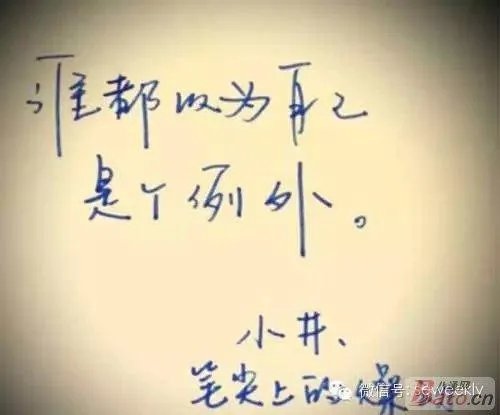 谁都以为自己
是个例外。
小井、
笔尖上的
微信号: seweekly
Bato.cn